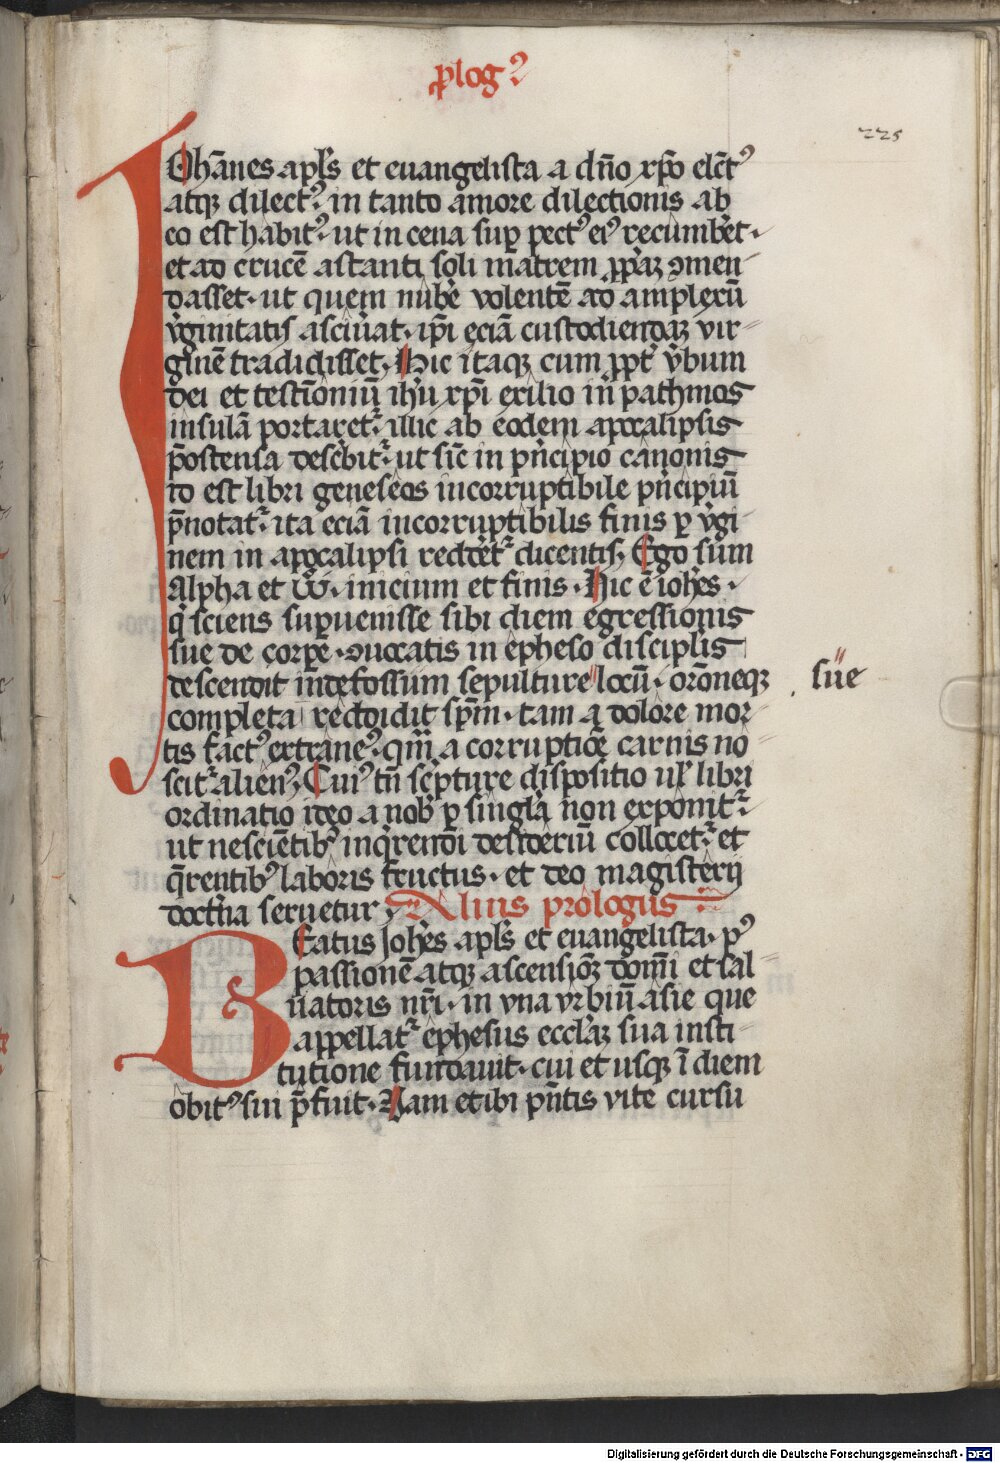 ꝓlogꝰ
225
IOhānes apl̄s et euangelista a dn̄o xp̄o elc̄tꝰ
atqꝫ dilectꝰ. in tanto amore dilectionis ab
eo est habitꝰ. ut in cena suꝑ pectꝰ eiꝰ recumbēt.
et ad crucē astanti soli matrem ꝓp̄aꝫ ꝯmen-
dasset. ut quem nub̄e volentē ad amplexū
v̄ginitatis asciūat. ip̄i eciā custodiendaꝫ vir-
ginē tradidisset. Hic itaqꝫ cum ꝓpt̄ v̄bum
dei et testīoniū ih̄u xp̄i exilio in pathmos
insulā portaretᷣ. illic ab eodem apocalipsis
p̄ostensa desc̄bitᷣ. ut sic̄ in pn̄cipio canonis
id est libri geneseos incorruptibile pn̄cipiū
p̄notatᷣ. ita eciā incorruptibilis finis ꝑ v̄gi
nem in apocalipsi redd̄etᷣ dicentis, Ego sum
Alpha et ω. inicium et finis. Hic ē ioh̄es.
q̄ sciens suꝑuenisse sibi diem egressionis
sue de corꝑe. ꝯuocatis in epheso discipl̄is
descendit in defossum sepulture locū. or̄oneqꝫ
süe
completa reddidit sp̄m. tam a dolore mor-
tis factꝰ extraneꝰ. qm̄ a corruptiōe carnis no-
scitᷣ alienꝰ, Cuiꝰ tn̄ sc̄pture dispositio ul̄ libri
ordinatio ideo a nob̄ ꝑ singl̄a non exponitᷣ.
ut nesciētibꝰ inq̄rendi desideriū collocetᷣ. et
q̄rentibꝰ laboris fructus. et deo magisterij
doct̄ina seruetur, Alius prologus
BEatus Joh̄es apl̄s et euangelista. pꝰ
passionē atqꝫ ascensiōꝫ domī et sal-
uatoris nr̄i. in vna vrbiū asie que
appellatᷣ ephesus eccl̄aꝫ sua insti-
tutione fundauit. cui et usqꝫ ī diem
obitꝰ sui p̄fuit. Nam et ibi pn̄tis vite cursu
Digitalisierung gefördert durch die Deutsche Forschungsgemeinschaft - DFG